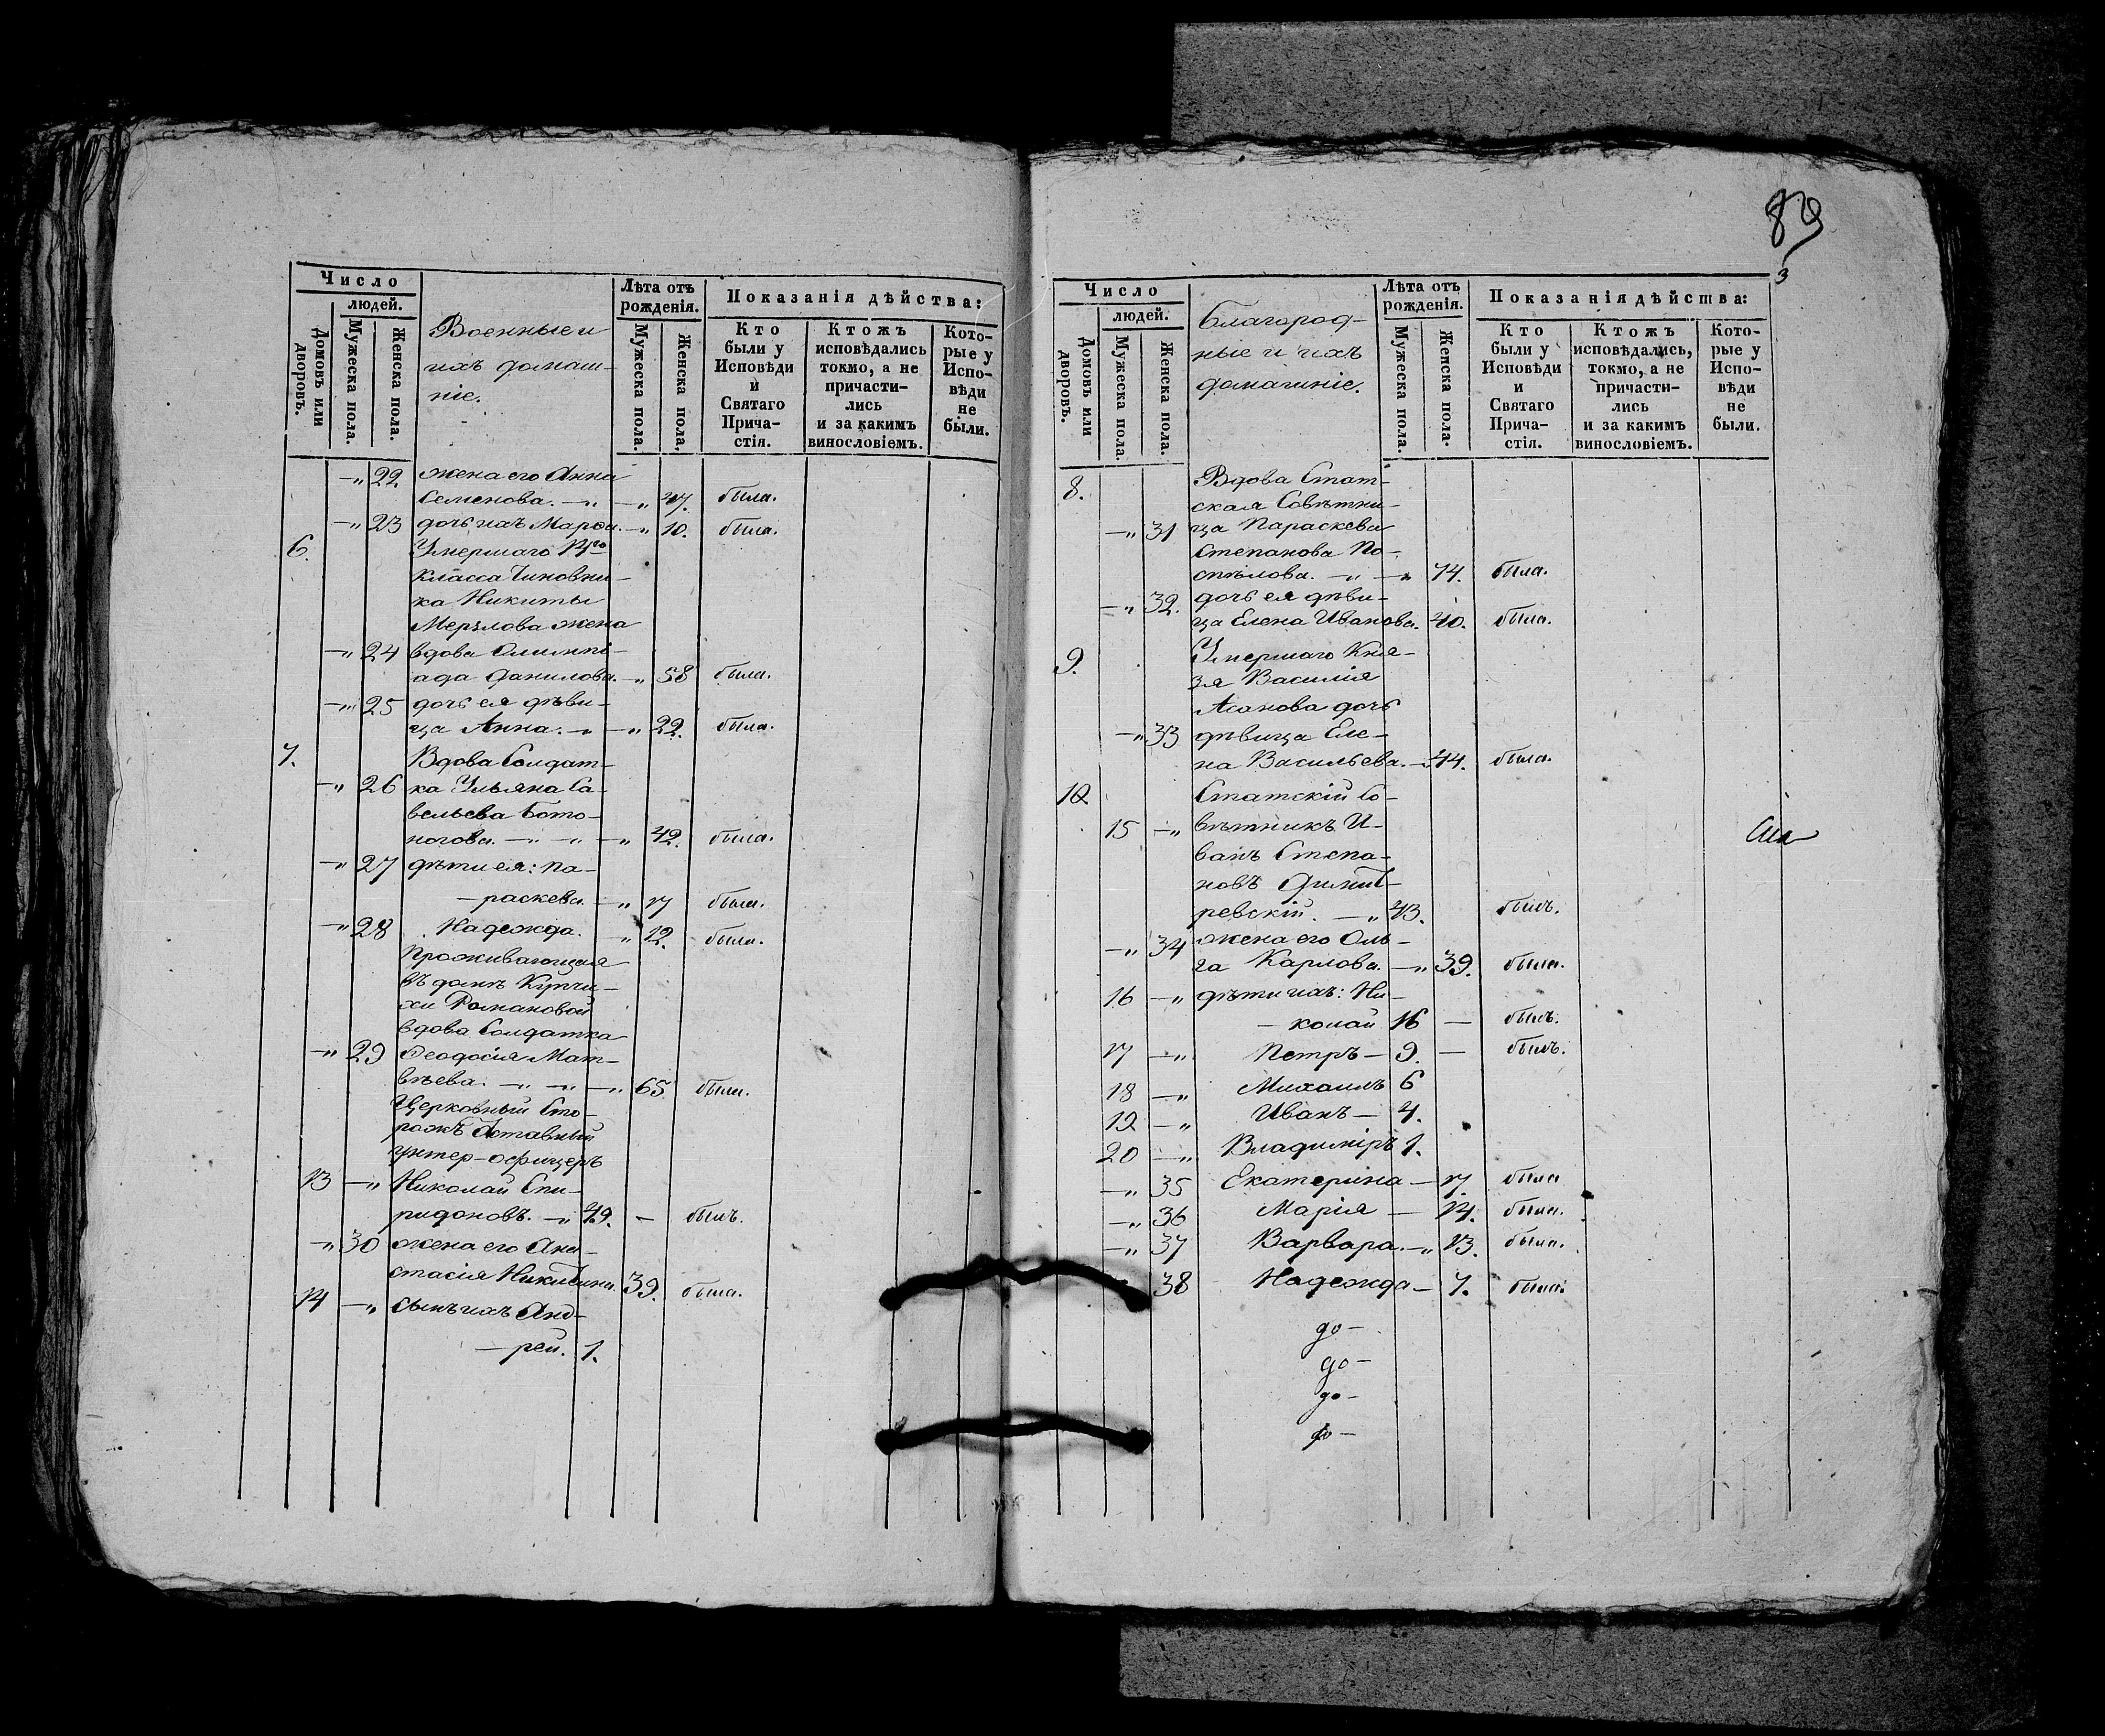 Число
людей.
Домовъ или дворовъ.
Мужеска пола.
Женска пола.
Военные и
ихъ домаш-
ніе.
Лѣта отъ
рожденія.
Мужеска пола.
Женска пола,
Показанія дѣйства:
Кто
были у
Исповѣди
и
Святаго
Прича-
стія.
Ктожъ
исповѣдались
токмо, а не
причасти-
лись
и за какимъ
винословіемъ.
Кото-
рые у
Испо-
вѣди
не
были.
—„ 22. жена его Анна
Семенова. —„ —„ 47. была.
—„ 23 дочь ихъ Марѳа. —„ 10. была.
6. Умершаго 14го
класса Чиновни-
ка Никиты
Мерзлова жена
—„ 24 вдова Олимпі-
ада Данилова. —„ 58 была.
—„ 25 дочь ея дѣви-
ца Анна. —„ —„ 22. была.
7. Вдова Солдат-
—„ 26 ка Ульяна Са-
вельева Бото-
ногова. —„ —„ —„ 42. была.
—„ 27 дѣти ея: Па-
—раскева. —„ 17 была.
—„ 28 Надежда. —„ 12. была.
Проживающая
въ домѣ Купчи-
хи Романовой
вдова Солдатка
—„ 29 Ѳеодосія Мат-
вѣева. —„ —„ —„ 65. была.
Церковный Сто-
рожъ Отставный
унтер-офицеръ
13 —„ Николай Спи-
ридоновъ. —„ 49. — былъ.
—„ 30 жена его Ана-
стасія Никитина. 39. была.
14 —„ сынъ ихъ Анд-
—рей. 1.
89
3
Число
людей.
Домовъ или дворовъ.
Мужеска пола.
Женска пола.
Благород-
ные и ихъ
домашніе.
Лѣта отъ
рожденія.
Мужеска пола.
Женска пола.
Показанія дѣйства:
Кто
были у
Исповѣди
и
Святаго
Прича-
стія.
Ктожъ
исповѣдались,
токмо, а не
причасти-
лись
и за какимъ
винословіемъ.
Кото-
рые у
Испо-
вѣди
не
были.
8. Вдова Стат-
ская Совѣтни-
—„ 31 ца Параскева
Степанова По-
спѣлова. —„ —„ 74. была.
—„ 32. дочь ея дѣви-
ца Елена Иванова. 40. была.
9. Умершаго Кня-
зя Василія
Асанова дочь
—„ 33 дѣвица Еле-
на Васильева. — 44. была.
10 Статскій Со-
15 —„ вѣтникъ И-
ванъ Степа-
новъ Димит-
ревскій. —„ 43. былъ.
—„ 34 жена его Оль-
га Карлова. —„ 39. была.
16 —„ дѣти ихъ: Ни-
— колай 16 — былъ.
17 —„ Петръ — 9. — былъ.
18 —„ Михаилъ 6
19 —„ Иванъ — 4.
20 —„ Владиміръ 1.
—„ 35 Екатерина — 17. была
—„ 36 Марія — 14. была.
—„ 37 Варвара. —„ 13. была.
38 Надежда — 7. была.
до —
до —
до —
до —